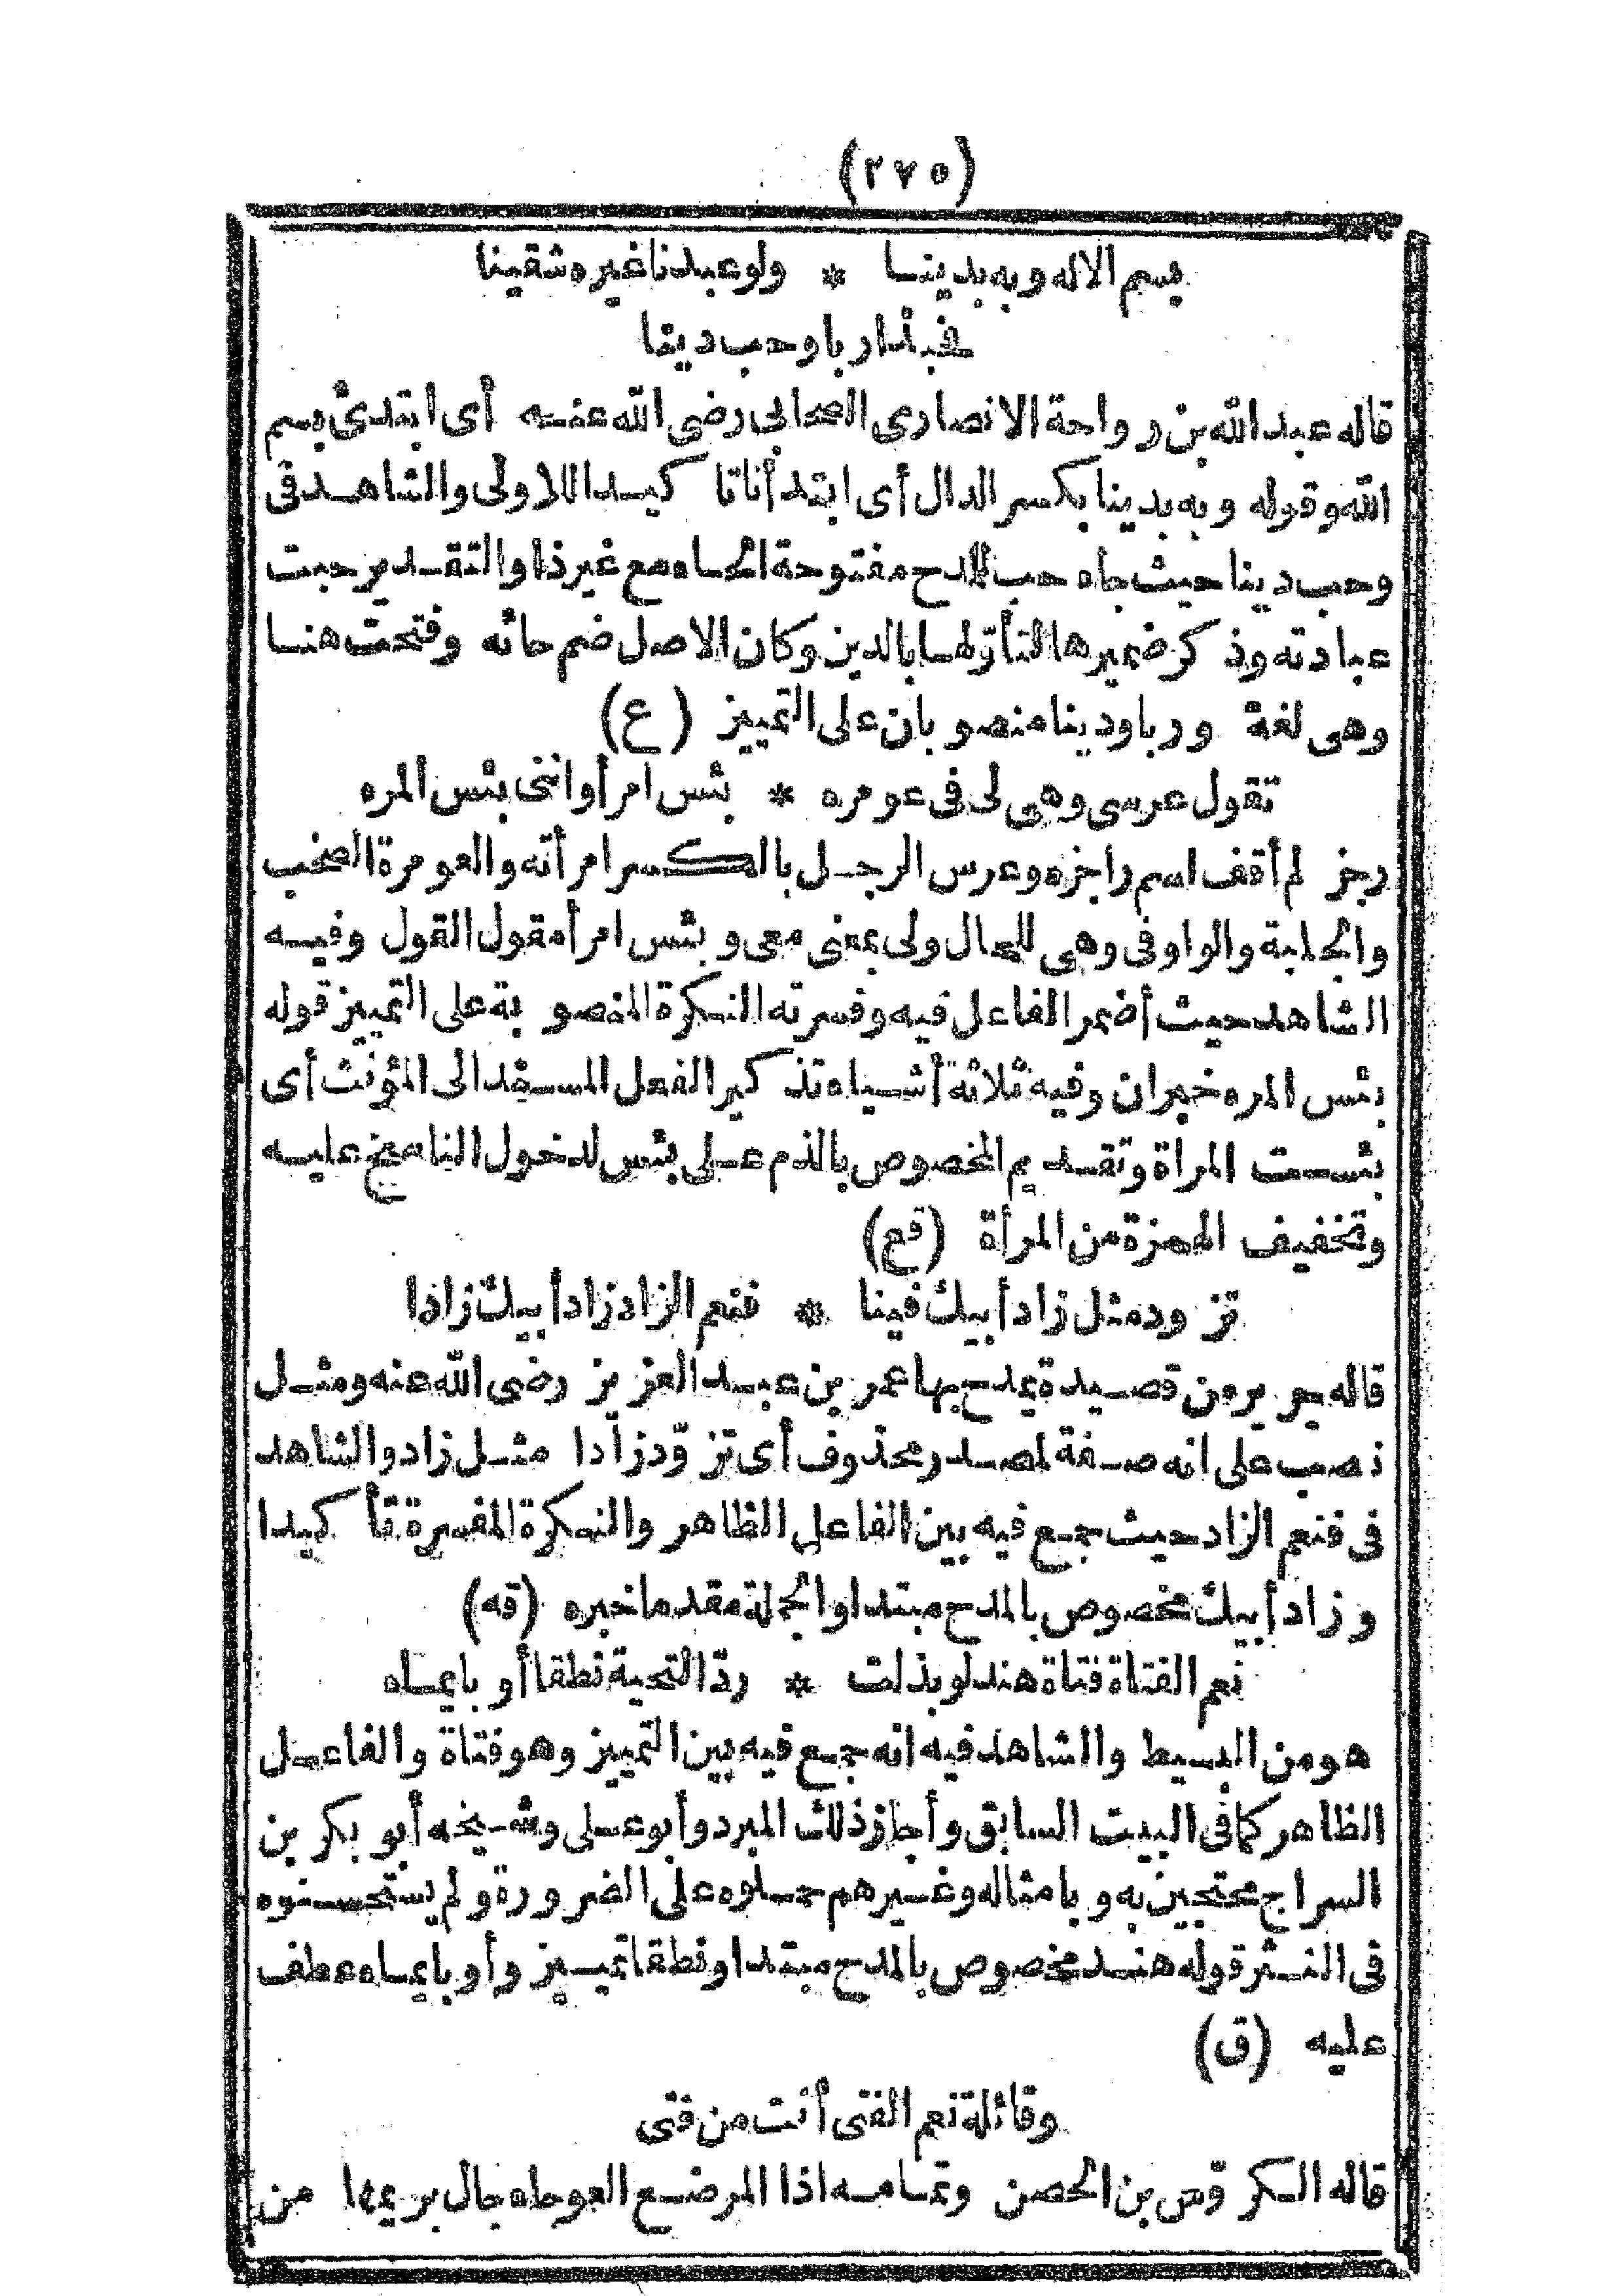 (٢٧٥)
بسم الاله وبه بدينا * ولو عبدنا غيره شقينا
فحبذا ربا وحب دينا
قاله عبد الله بن رواحة الانصارى الصحابى رضى الله عنه أى ابتدئ بسم
الله وقوله وبه بدينا بكسر الدال أى ابتدأنا تا كيد اللاولى والشاهد فى
وحب دينا حيث جاء حب للمدح مفتوحة الحاء مع غير ذا والتقدير حبت
عبادته وذ كر ضميرها لتأولها بالدين وكان الاصل ضم حائه وفتحت هنا
وهى لغة وربا ودينا منصوبان على التمييز (ع)
تقول عرسى وهى لى فى عومره * بئس امرأ واننى بئس المره
رجز لم أقف اسم راجزه وعرس الرجل بالكسر امرأته والعومرة الصخب
والجلبة والواو فى وهى للحال ولى بمعنى معى وبئس امرأ مقول القول وفيه
الشاهد حيث أضمر الفاعل فيه وفسرته النكرة المنصوبة على التمييز قوله
بئس المره خبران وفيه ثلاثة أشياء تذ كير الفعل المسند الى المؤنث أى
بئست المراة وتقديم المخصوص بالذم على بئس لدخول الناسخ عليه
وتخفيف الهمزة من المرأة (قع)
تزود مثل زاد أبيك فينا * فنعم الزاد زاد أبيك زادا
قاله جرير من قصيدة يمدح بها عمر بن عبد العزيز رضى الله عنه ومثل
نصب على انه صفة لمصدر محذوف أى تزوّد زادا مثل زاد والشاهد
فى فنعم الزاد حيث جمع فيه بين الفاعل الظاهر والنكرة المفسرة تأ كيدا
وزاد أبيك مخصوص بالمدح مبتدا والجملة مقدما خبره (قه)
نعم الفتاة فتاة هند لو بذلت * ردّ التحية نطقا أو بايماء
هو من البسيط والشاهد فيه انه جمع فيه بين التمييز وهو فتاة والفاعل
الظاهر كما فى البيت السابق وأجاز ذلك المبرد وأبو على وشيخه أبو بكر بن
السراج محتجين به وبامثاله وغيرهم حملوه على الضرورة ولم يستحسنوه
فى النثر قوله هند مخصوص بالمدح مبتدا ونطقا تمييز وأو بايماء عطف
عليه (ق)
وقائلة نعم الفتى أنت من فتى
قاله الكروّس بن الحصن وتمامه اذا المرضع العوجاء جال بريمها من